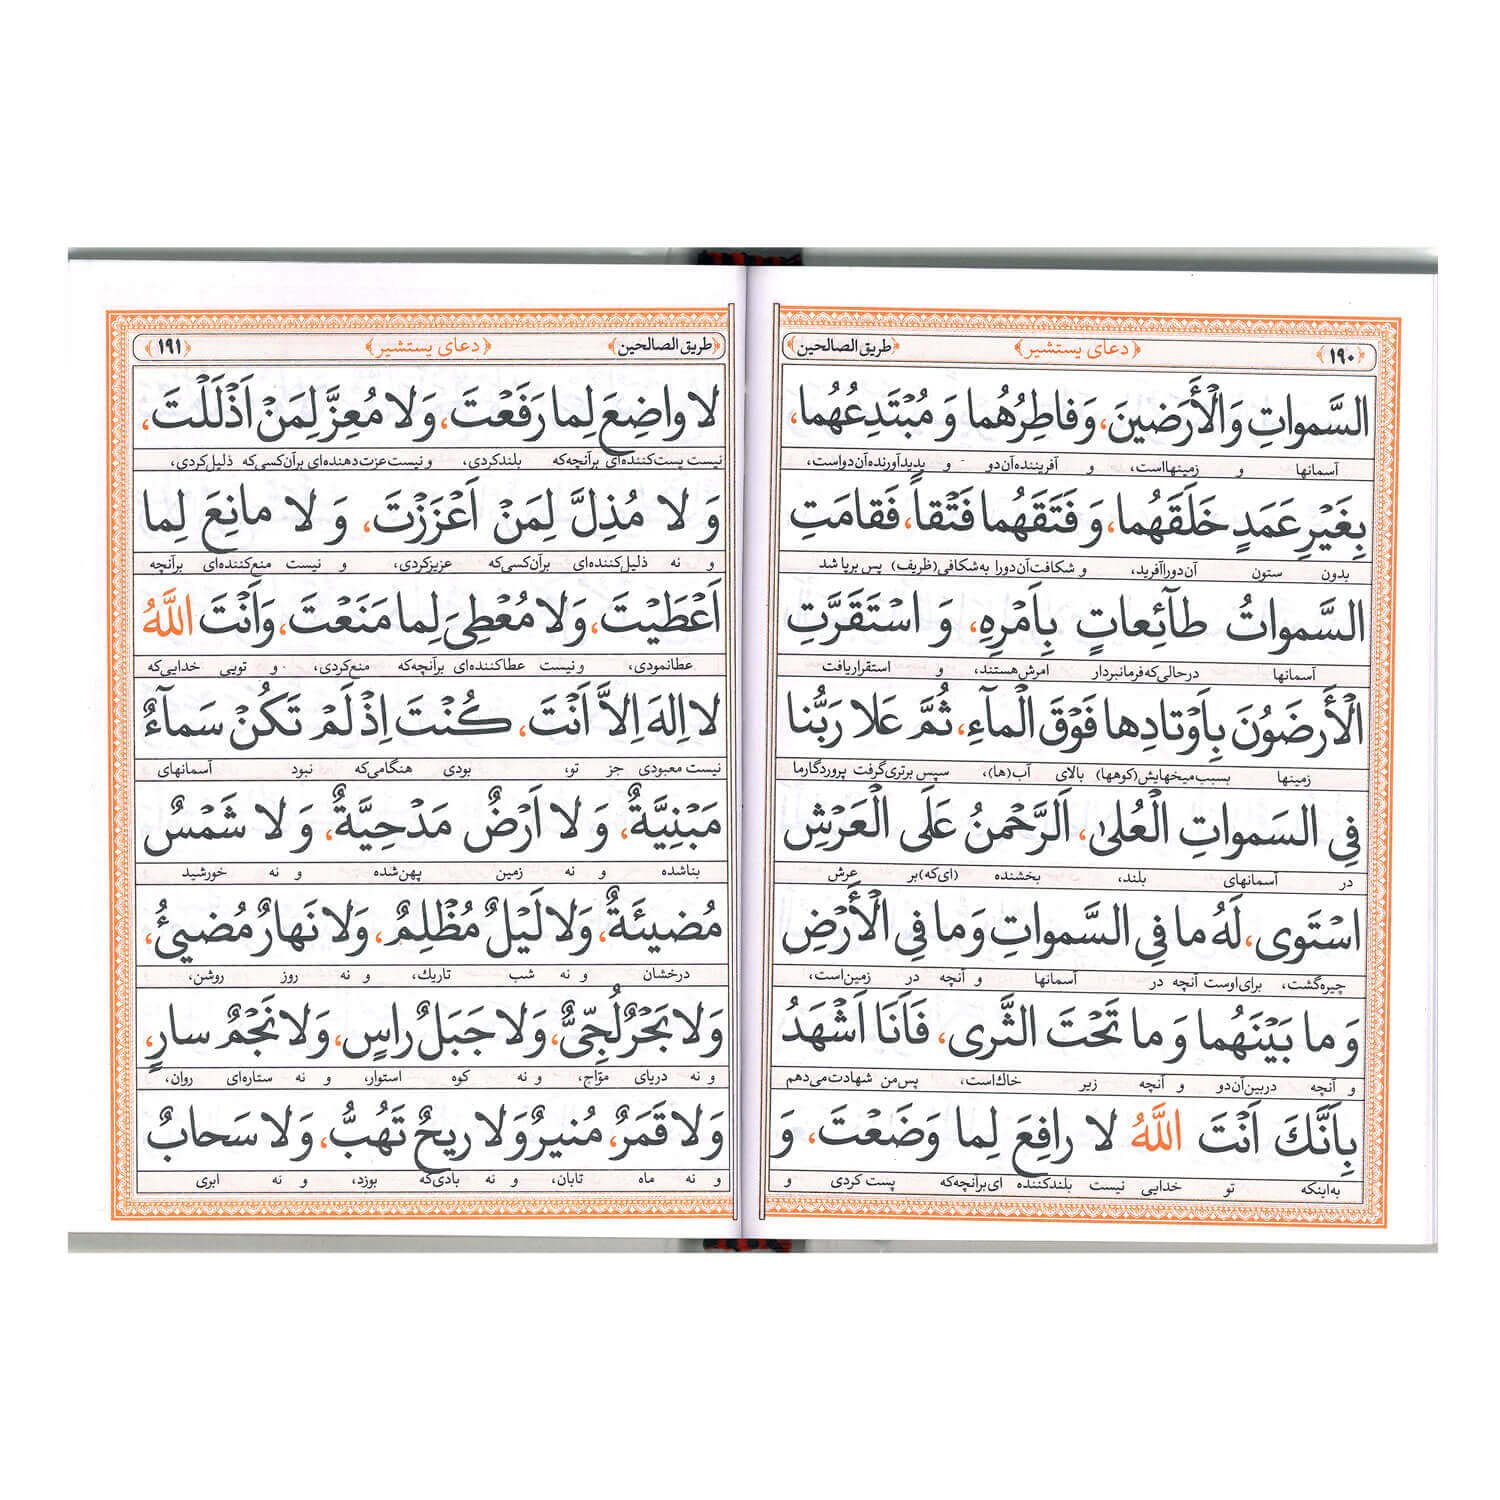 ﴿۱۹۰﴾ ﴿دعای یستشیر﴾ ﴿طریق الصالحین﴾
السَّمواتِ وَالْأَرَضينَ، وَفاطِرُهُما وَ مُبْتَدِعُهُما،
آسمانها و زمینهااست، و آفریننده‌آن‌دو و پدیدآورنده‌آن‌دواست،
بِغَيْرِ عَمَدٍ خَلَقَهُما، وَ فَتَقَهُما فَتْقاً، فَقامَتِ
بدون ستون آن‌دوراآفرید، و شکافت‌آن‌دورا به‌شکافی(ظریف) پس برپا شد
السَّمواتُ طآئِعاتٍ بِاَمْرِهِ، وَ اسْتَقَرَّتِ
آسمانها درحالی‌که‌فرمانبردار امرش‌هستند، و استقراریافت
الْأَرَضُونَ بِاَوْتادِها فَوْقَ الْمآءِ، ثُمَّ عَلا رَبُّنا
زمینها بسبب‌میخهایش(کوهها) بالای آب(ها)، سپس برتری‌گرفت پروردگارما
فِي السَمواتِ الْعُلىٰ، اَلرَّحْمنُ عَلَى الْعَرْشِ
در آسمانهای بلند، بخشنده (ای‌که)بر عرش
اسْتَوى، لَهُ ما فِي السَّمواتِ وَما فِي الْأَرْضِ
چیره‌گشت، برای‌اوست آنچه در آسمانها و آنچه در زمین‌است،
وَ ما بَيْنَهُما وَ ما تَحْتَ الثَّرى، فَاَنَا اَشْهَدُ
و آنچه دربین‌آن‌دو و آنچه زیر خاك‌است، پس‌من شهادت‌می‌دهم
بِاَنَّكَ اَنْتَ اللَّهُ لا رافِعَ لِما وَضَعْتَ، وَ
به‌اینکه تو خدایی نیست بلندکننده‌ای‌برآنچه‌که پست کردی و
﴿طریق الصالحین﴾ ﴿دعای یستشیر﴾ ﴿۱۹۱﴾
لا واضِعَ لِما رَفَعْتَ، وَلا مُعِزَّ لِمَنْ اَذْلَلْتَ،
نیست پست‌کننده‌ای برآنچه‌که بلندکردی، و نیست‌عزت‌دهنده‌ای برآن‌کسی‌که ذلیل‌کردی،
وَ لا مُذِلَّ لِمَنْ اَعْزَزْتَ، وَ لا مانِعَ لِما
و نه ذلیل‌کننده‌ای برآن‌کسی‌که عزیزکردی، و نیست منع‌کننده‌ای برآنچه
اَعْطَيْتَ، وَلا مُعْطِىَ لِما مَنَعْتَ، وَاَنْتَ اللَّهُ
عطانمودی، و نیست عطاکننده‌ای برآنچه‌که منع‌کردی، و تویی خدایی‌که
لا اِلهَ اِلاَّ اَنْتَ، كُنْتَ اِذْ لَمْ تَكُنْ سَمآءٌ
نیست معبودی جز تو، بودی هنگامی‌که نبود آسمانهای
مَبْنِيَّةٌ، وَ لا اَرْضٌ مَدْحِيَّةٌ، وَ لا شَمْسٌ
بناشده و نه زمین پهن‌شده و نه خورشید
مُضيئَةٌ، وَلا لَيْلٌ مُظْلِمٌ، وَلا نَهارٌ مُضيئٌ،
درخشان و نه شب تاریك، و نه روز روشن،
وَلا بَحْرٌ لُجِّىٌّ، وَلا جَبَلٌ راسٍ، وَلا نَجْمٌ سارٍ،
و نه دریای موّاج، و نه کوه استوار، و نه ستاره‌ای روان،
وَلا قَمَرٌ، مُنيرٌ وَلا ريحٌ تَهُبُّ، وَلا سَحابٌ
و نه ماه تابان، و نه بادی‌که بوزد، و نه ابری